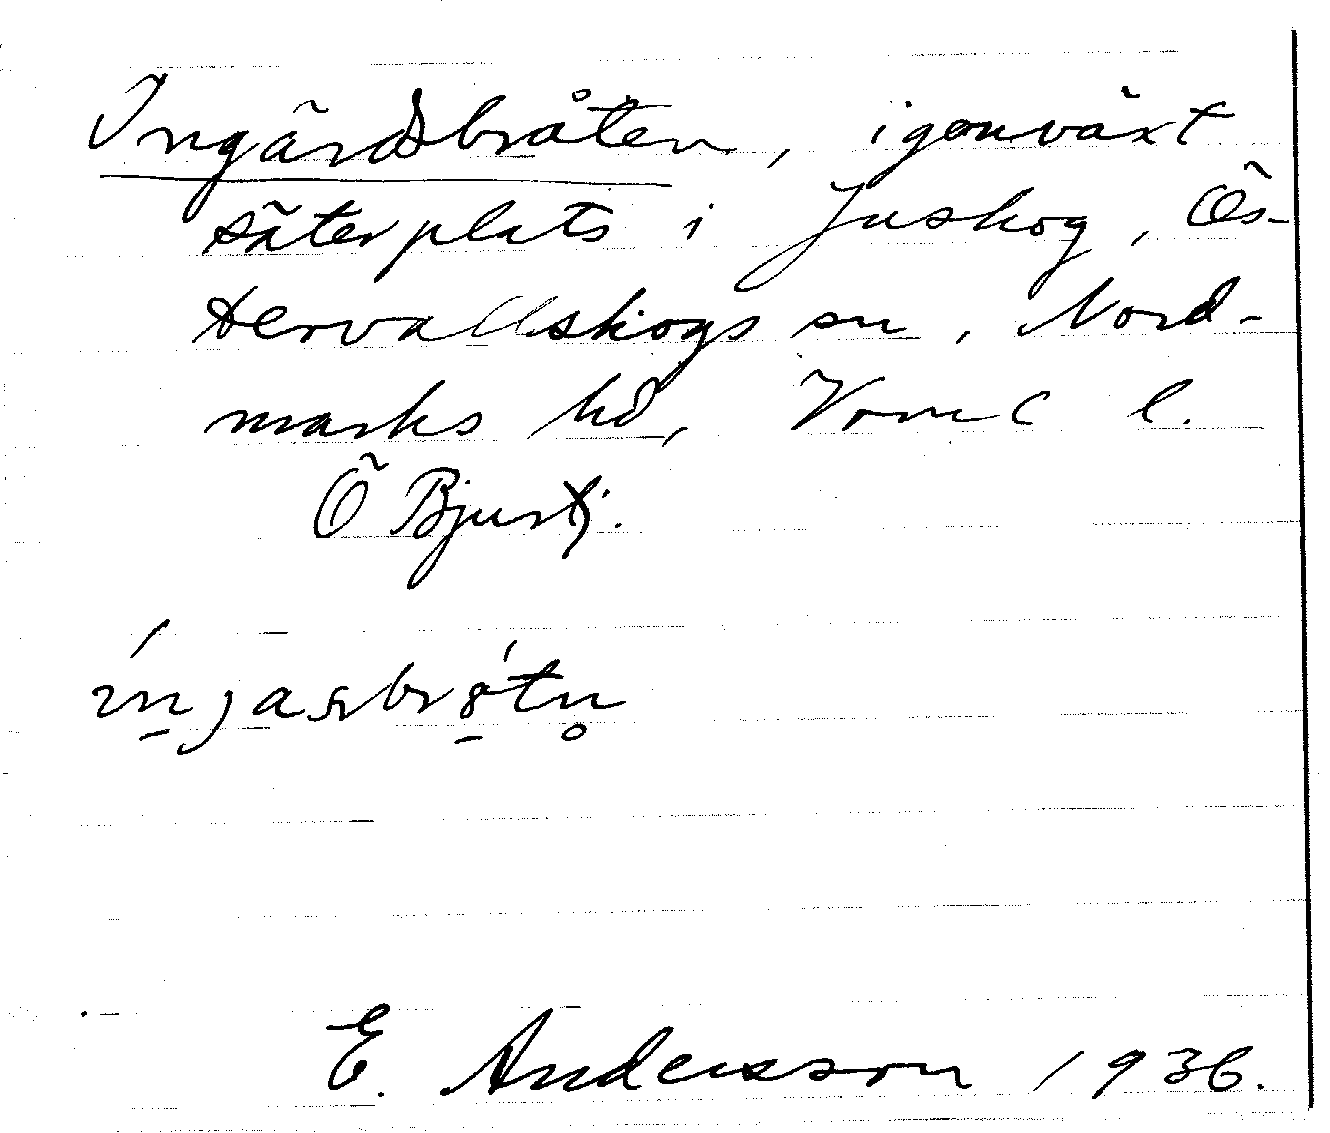 Ingärdsbråten, igenväxt
säterplats i Juskog, Ös-
tervallskogs sn, Nord-
marks hd, Verml l.
Ö Bjurtj.
E. Andersson 1936.